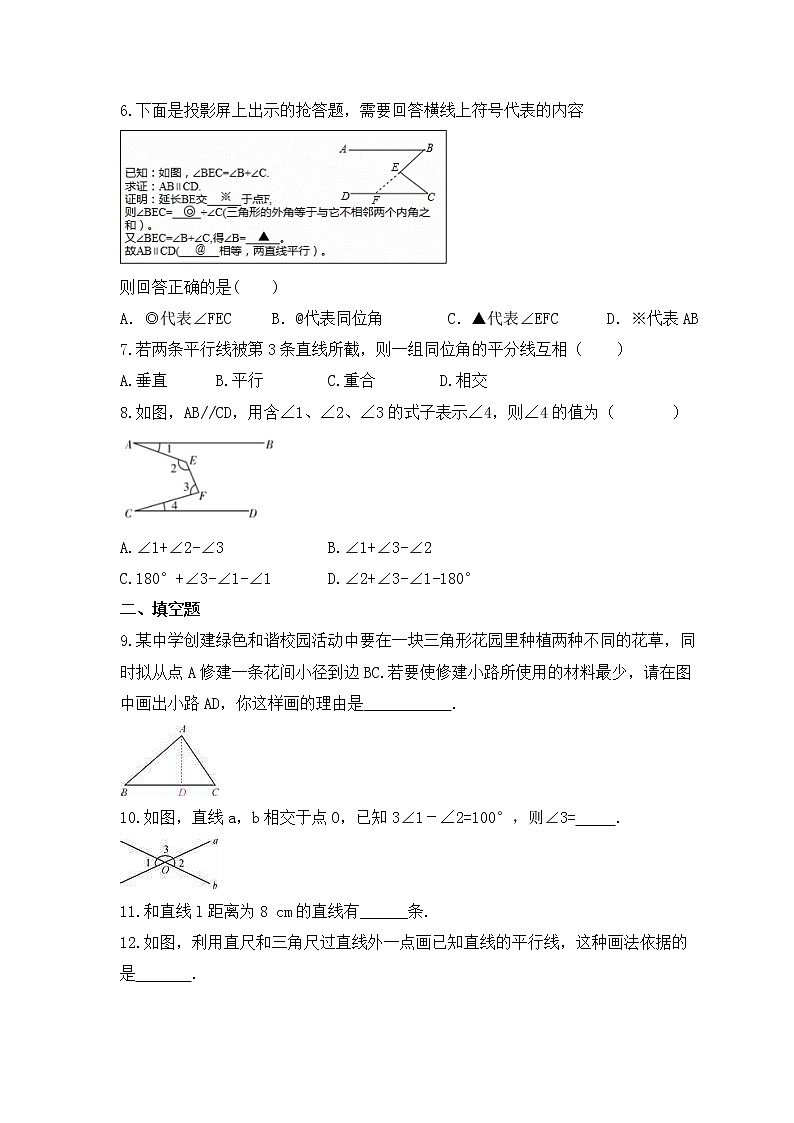 6.下面是投影屏上出示的抢答题，需要回答横线上符号代表的内容
已知:如图,∠BEC=∠B+∠C.
求证:AB∥CD.
证明:延长BE交 ※ 于点F,
则∠BEC= ◎ +∠C(三角形的外角等于与它不相邻两个内角之
和)。
又∠BEC=∠B+∠C,得∠B= ▲ 。
故AB∥CD( @ 相等，两直线平行)。
A B
E
D F C
则回答正确的是( )
A. ◎代表∠FEC B. @代表同位角 C. ▲代表∠EFC D. ※代表AB
7.若两条平行线被第3条直线所截，则一组同位角的平分线互相( )
A.垂直 B.平行 C.重合 D.相交
8.如图，AB//CD，用含∠1、∠2、∠3的式子表示∠4，则∠4的值为( )
A 1 B
2 E
3 F
C 4 D
A.∠1+∠2-∠3 B.∠1+∠3-∠2
C.180°+∠3-∠1-∠1 D.∠2+∠3-∠1-180°
二、填空题
9.某中学创建绿色和谐校园活动中要在一块三角形花园里种植两种不同的花草，同
时拟从点A修建一条花间小径到边BC.若要使修建小路所使用的材料最少，请在图
中画出小路AD，你这样画的理由是___________.
A
B D C
10.如图，直线a，b相交于点O，已知3∠1－∠2=100°,则∠3=_____.
a
3
1 O 2
b
11.和直线l距离为8 cm的直线有______条.
12.如图，利用直尺和三角尺过直线外一点画已知直线的平行线，这种画法依据的
是_______.